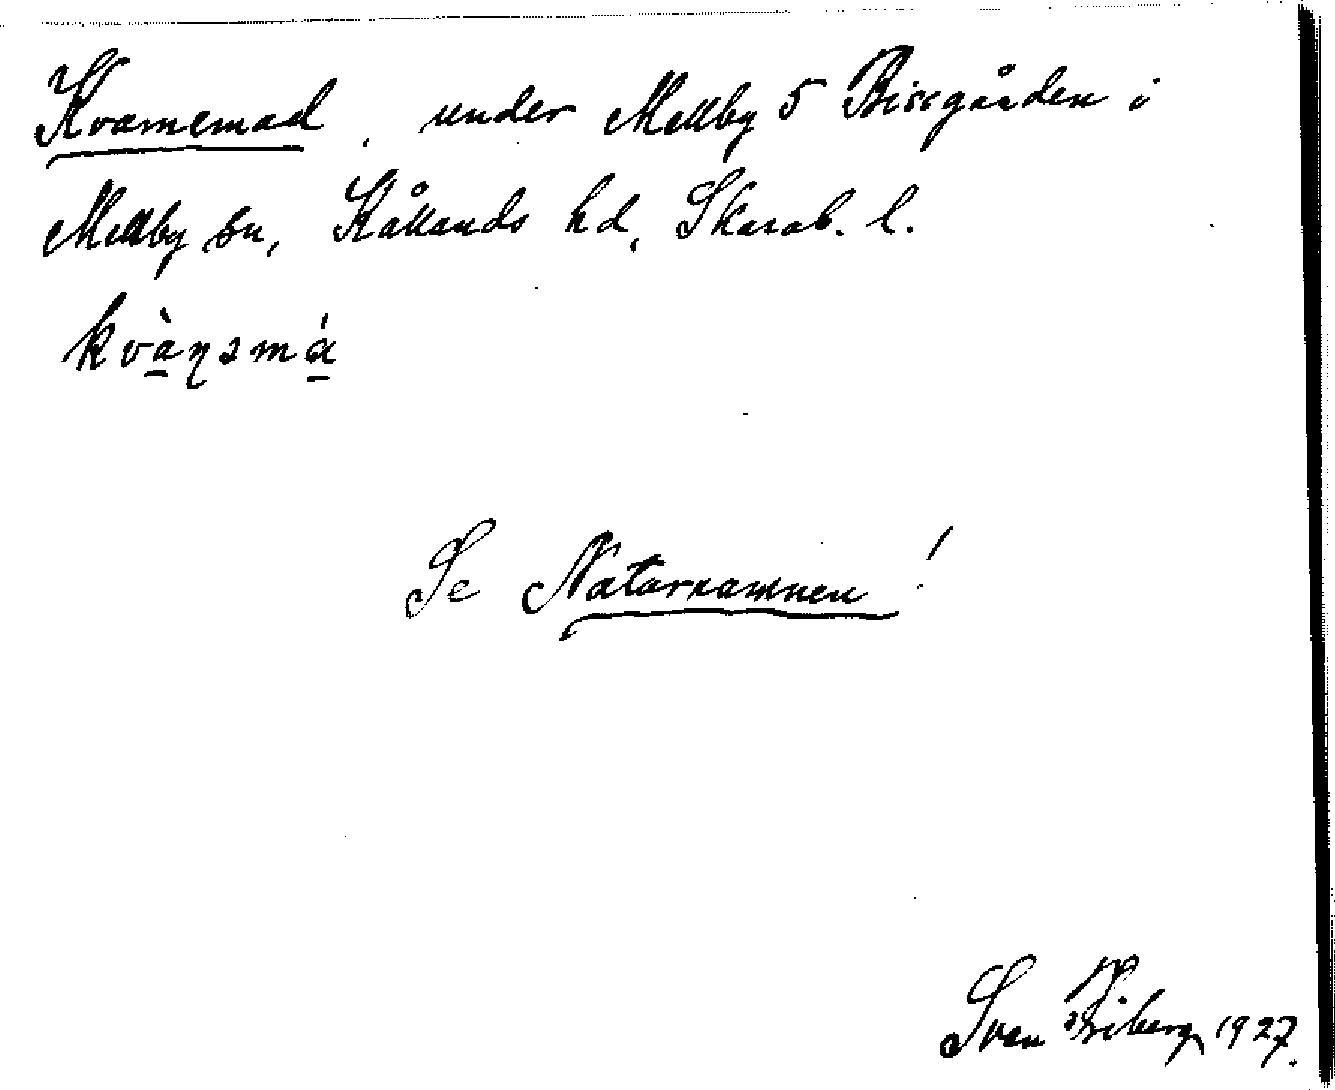 Kvarnemad, under Mellby 5 Bissgården i
Mellby sn, Kållands hd, Skarab. l.
kvàṇəmá
Se Naturnamnen!
Sven Friberg 1927.